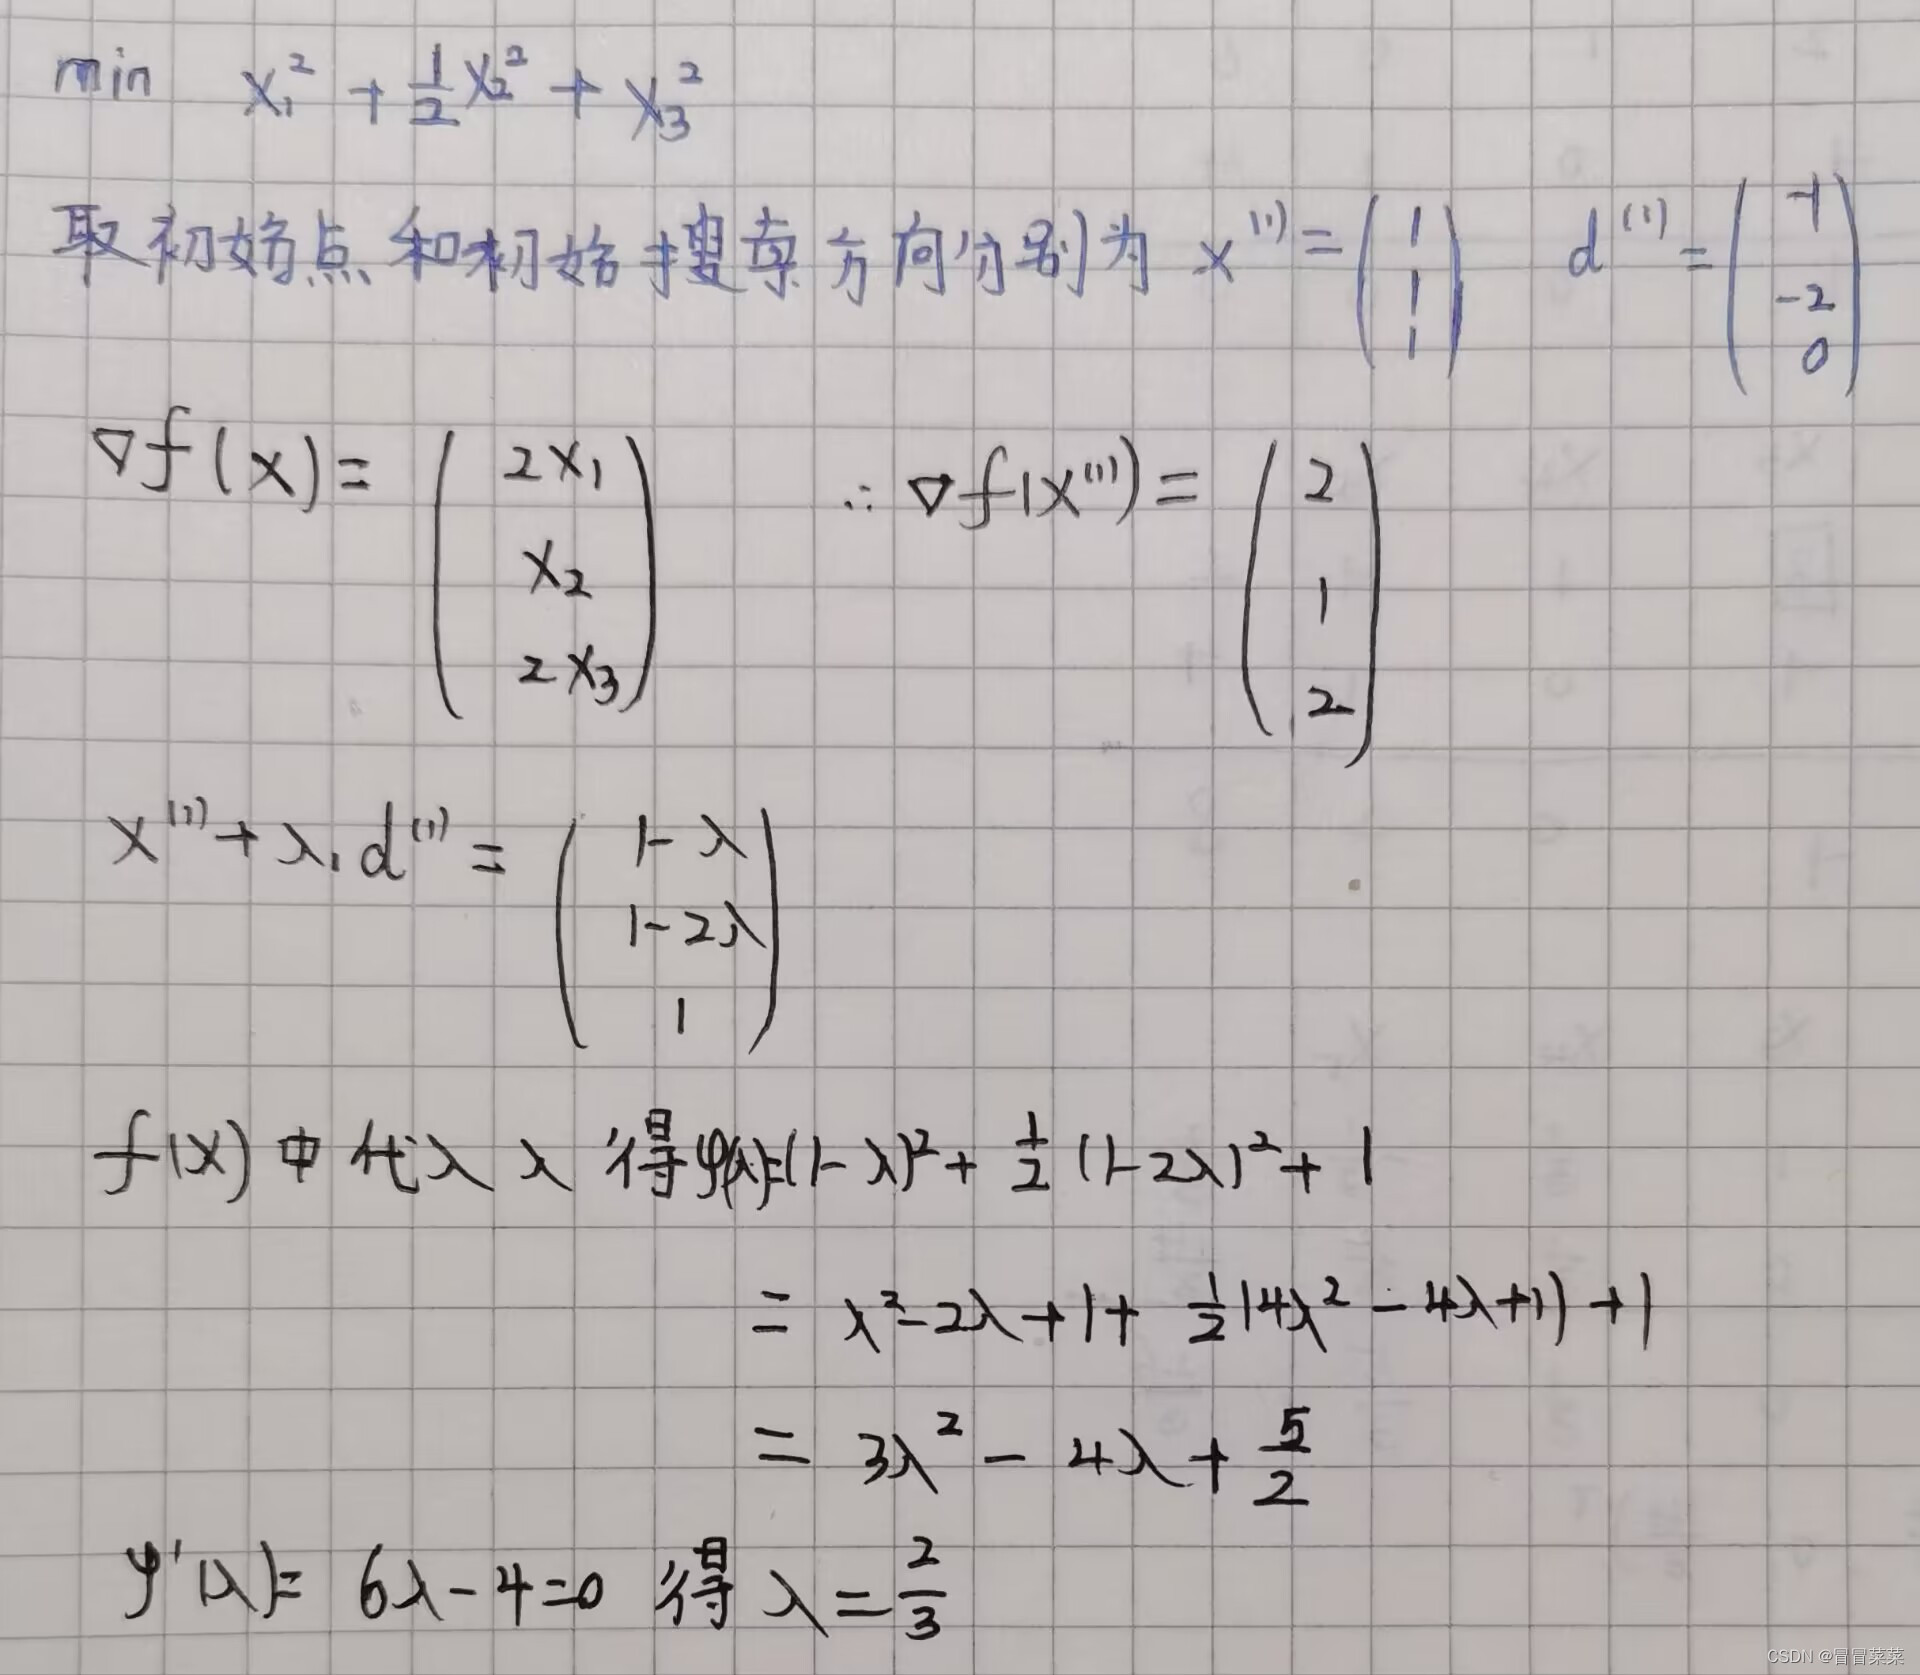 min x₁² + ½x₂² + x₃²
取初始点和初始搜索方向分别为 x⁽¹⁾ = (1 1 1) d⁽¹⁾ = (-1 -2 0)
∇f(x) = (2x₁ x₂ 2x₃) ∴ ∇f(x⁽¹⁾) = (2 1 2)
x⁽¹⁾ + λ₁d⁽¹⁾ = (1-λ 1-2λ 1)
f(x) 中代入 λ 得 φ(λ)=(1-λ)² + ½(1-2λ)² + 1
= λ²-2λ+1+ ½(4λ² - 4λ+1) + 1
= 3λ² - 4λ + 5/2
φ'(λ)= 6λ-4=0 得 λ = 2/3
CSDN @冒冒菜菜